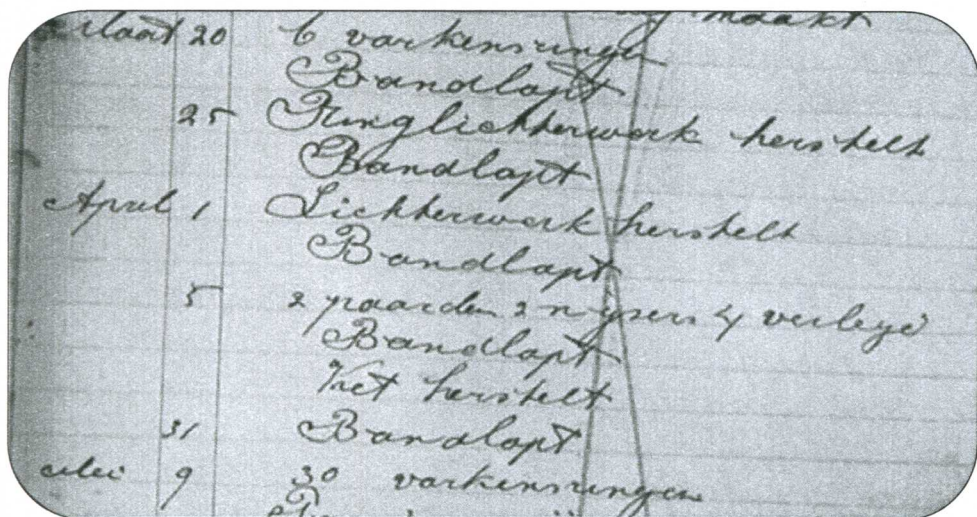 maakt
Maart 20 6 varkensringen
Bandlapt
25 Ringlichterwerk herstelt
Bandlapt
April 1 Lichterwerk herstelt
Bandlapt
5 2 paarden 2 n ijsers 4 verleyd
Bandlapt
herstelt
31 Bandlapt
Mei 9 30 varkensringen